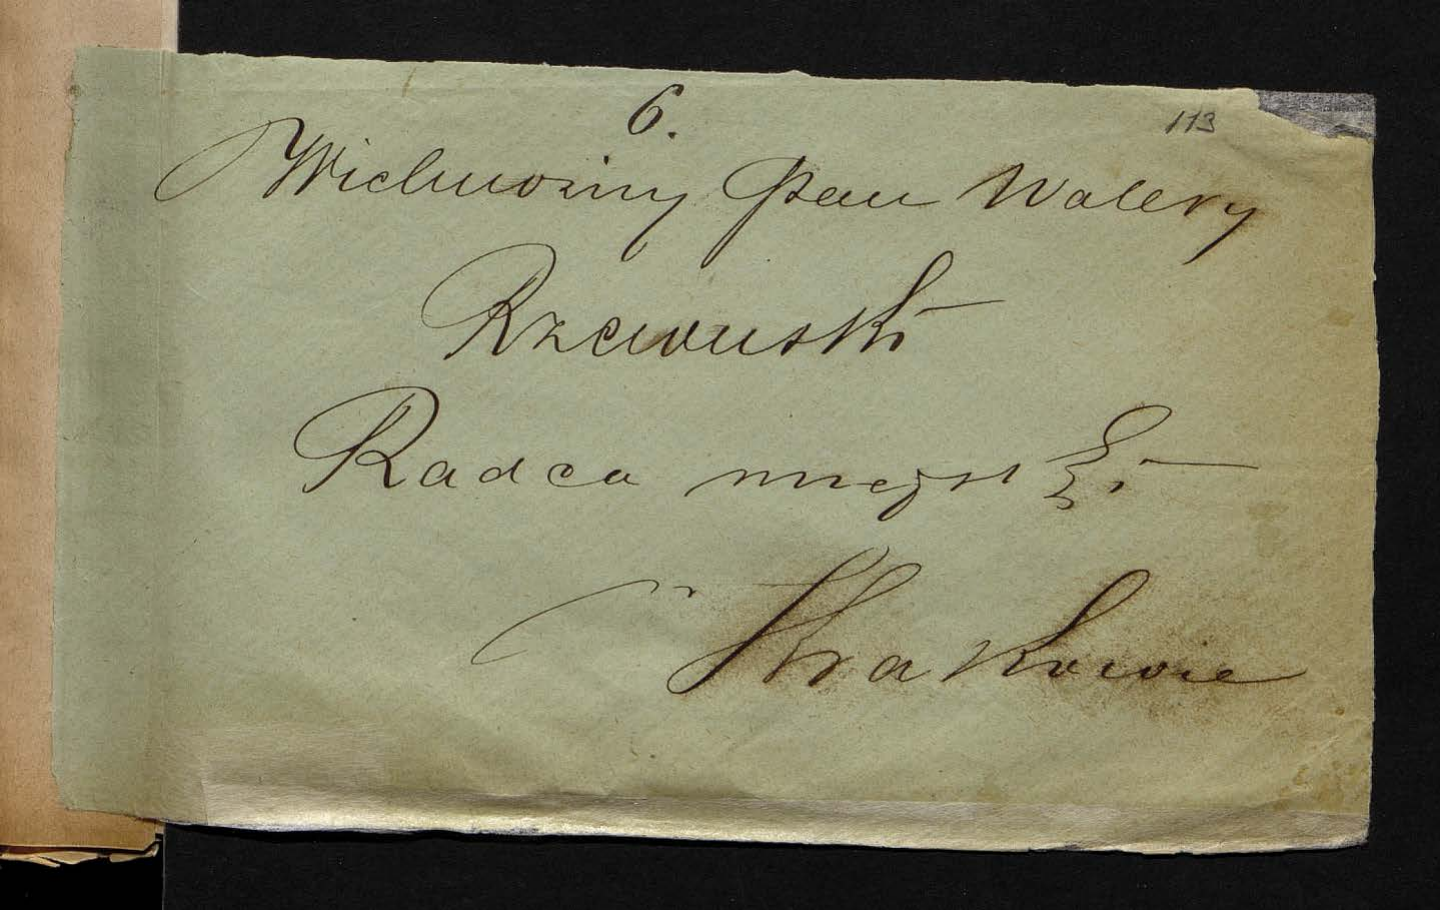 6.
113
Wielmożny Pan Walery
Rzewuski
Radca miejski
w Krakowie